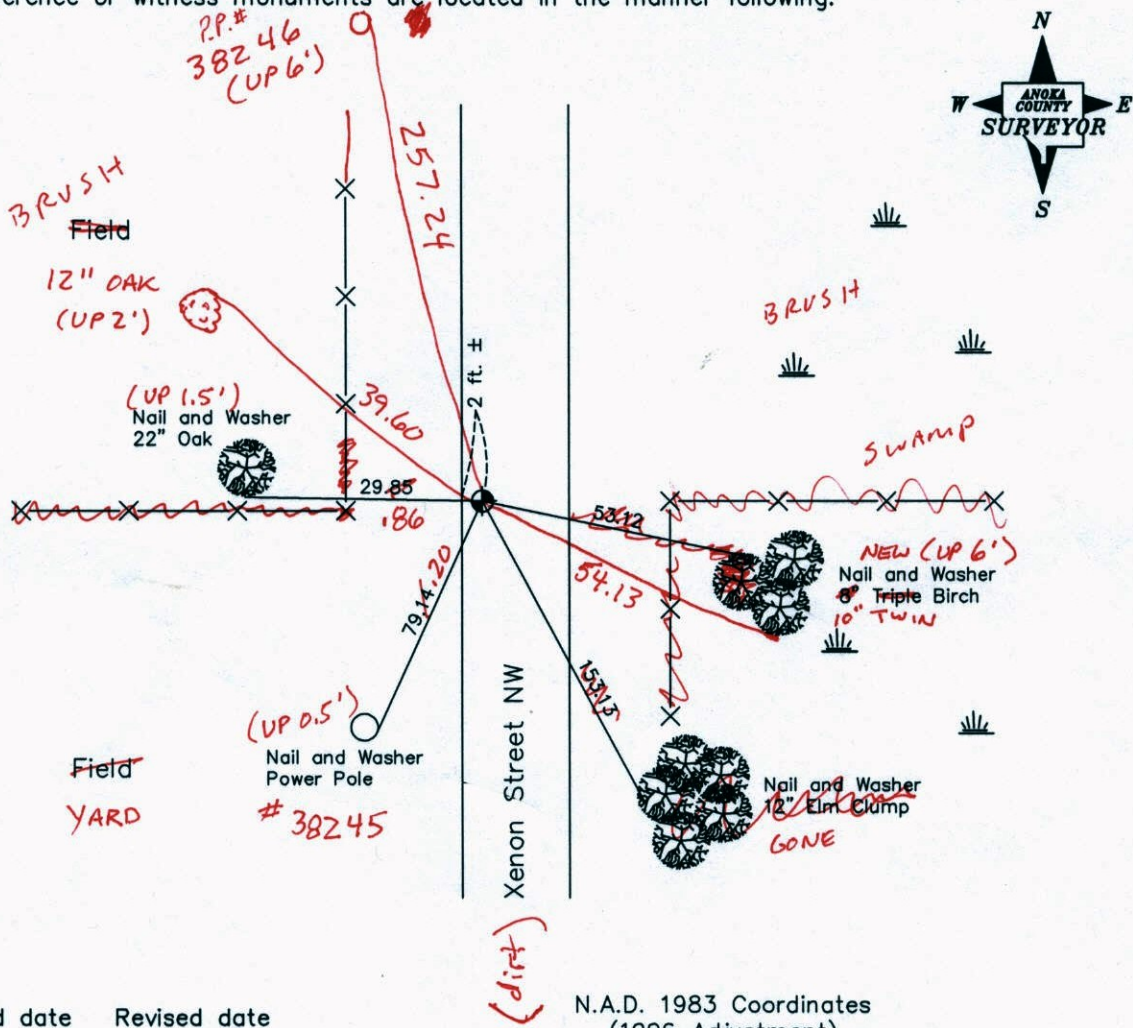 erence or witness monuments are located in the manner following:
P.P.#
38246
(UP 6')
N
W
ANOKA
COUNTY
E
SURVEYOR
S
257.24
BRUSH
Field
12" OAK
(UP 2')
BRUSH
2 ft. ±
(UP 1.5')
Nail and Washer
22" Oak
39.60
SWAMP
29.85
.86
53.12
NEW (UP 6')
Nail and Washer
8" Triple Birch
10" TWIN
54.13
79.14
.20
153.13
(UP 0.5')
Nail and Washer
Power Pole
# 38245
Field
YARD
Xenon Street NW
(dirt)
Nail and Washer
12" Elm Clump
GONE
d date Revised date
N.A.D. 1983 Coordinates
(1996 Adjustment)